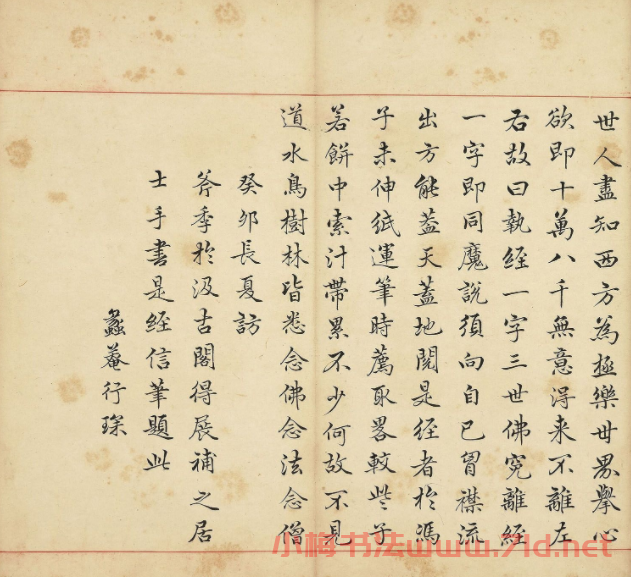 世人盡知西方為極樂世界舉心
欲即十萬八千無意得来不離左
右故曰執經一字三世佛冤離經
一字即同魔說須向自己胷襟流
出方能蓋天蓋地閱是經者於馮
子未伸紙運筆時薦取畧較些子
若餅中索汁帶累不少何故不見
道水鳥樹林皆悉念佛念法念僧
癸夘長夏訪
斧季於汲古閣得展補之居
士手書是經信筆題此
蠡菴行琛
小梅书法www.71d.net